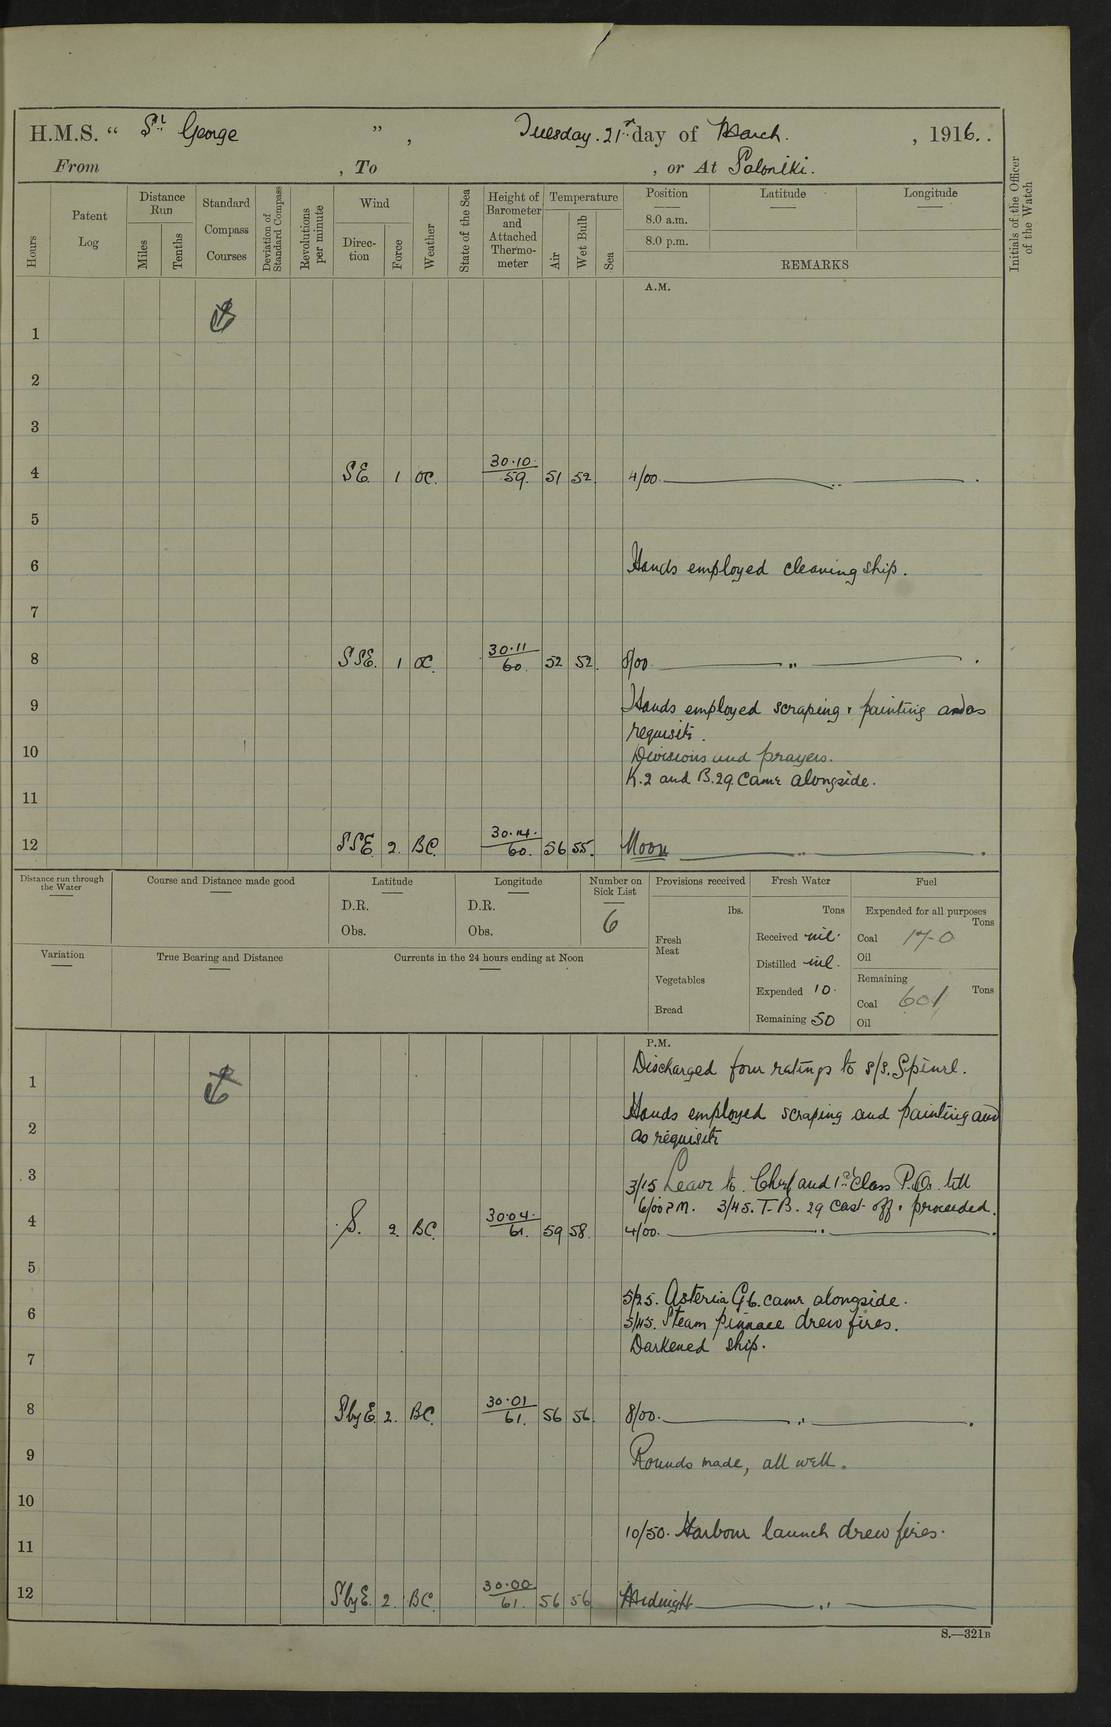 H.M.S. “ St George ” , Tuesday. 21st day of March. , 1916. .
From , To , or At Saloniki.
Hours
Patent Log
Distance Run
Miles
Tenths
Standard Compass Courses
Deviation of Standard Compass
Revolutions per minute
Wind
Direction
Force
Weather
State of the Sea
Height of Barometer and Attached Thermometer
Temperature
Air
Wet Bulb
Sea
Position
Latitude
Longitude
8.0 a.m.
8.0 p.m.
REMARKS
Initials of the Officer of the Watch
A.M.
1
2
3
4 SE. 1 OC. 30·10 / 59. 51 52. 4/00. ,, .
5
6 Hands employed cleaning ship.
7
8 SSE. 1 OC. 30·11 / 60. 52 52. 8/00 ,, .
9 Hands employed scraping & painting and as
requisite.
10 Divisions and prayers.
K.2 and B.29 came alongside.
11
12 SSE 2. BC. 30·14· / 60. 56 55. Noon ,, .
Distance run through the Water
Course and Distance made good
Latitude
D.R.
Obs.
Longitude
D.R.
Obs.
Number on Sick List
6
Provisions received
lbs.
Fresh Meat
Vegetables
Bread
Fresh Water
Tons
Received nil.
Distilled nil.
Expended 10.
Remaining 50
Fuel
Expended for all purposes
Tons
Coal 17-0
Oil
Remaining
Tons
Coal 601
Oil
Variation
True Bearing and Distance
Currents in the 24 hours ending at Noon
P.M.
Discharged four ratings to s/s.
1
Hands employed scraping and painting and
2 as requisite
3 3/15 Leave to Chief and 1st Class P.Os till
6/00 PM. 3/45. T.B. 29 cast off & proceeded.
4 S. 2. BC. 30·04· / 61. 59 58. 4/00. ,, .
5
5/25. Asteria G6. came alongside.
6 5/45. Steam pinnace drew fires.
Darkened ship.
7
8 SbyE. 2. BC. 30·01 / 61. 56 56. 8/00. ,, .
9 Rounds made, all well.
10
10/50. Harbour launch drew fires.
11
12 SbyE. 2. BC. 30·00 / 61. 56 56. Midnight ,,
S.—321B